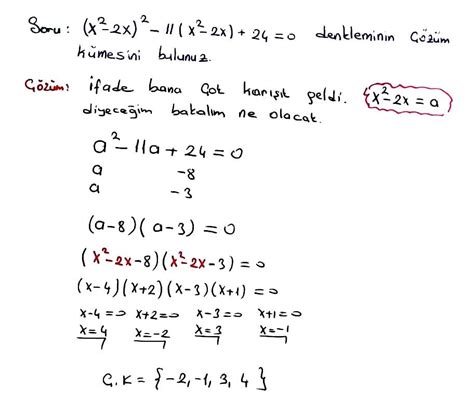 Soru: (x²-2x)² - 11(x²-2x) + 24 = 0 denkleminin çözüm
kümesini bulunuz.
Çözüm: İfade bana çok karışık geldi. x²-2x = a
diyeceğim bakalım ne olacak.
a² - 11a + 24 = 0
a -8
a -3
(a-8)(a-3) = 0
(x²-2x-8)(x²-2x-3) = 0
(x-4)(x+2)(x-3)(x+1) = 0
x-4=0 x+2=0 x-3=0 x+1=0
x=4 x=-2 x=3 x=-1
Ç.K = {-2, -1, 3, 4}